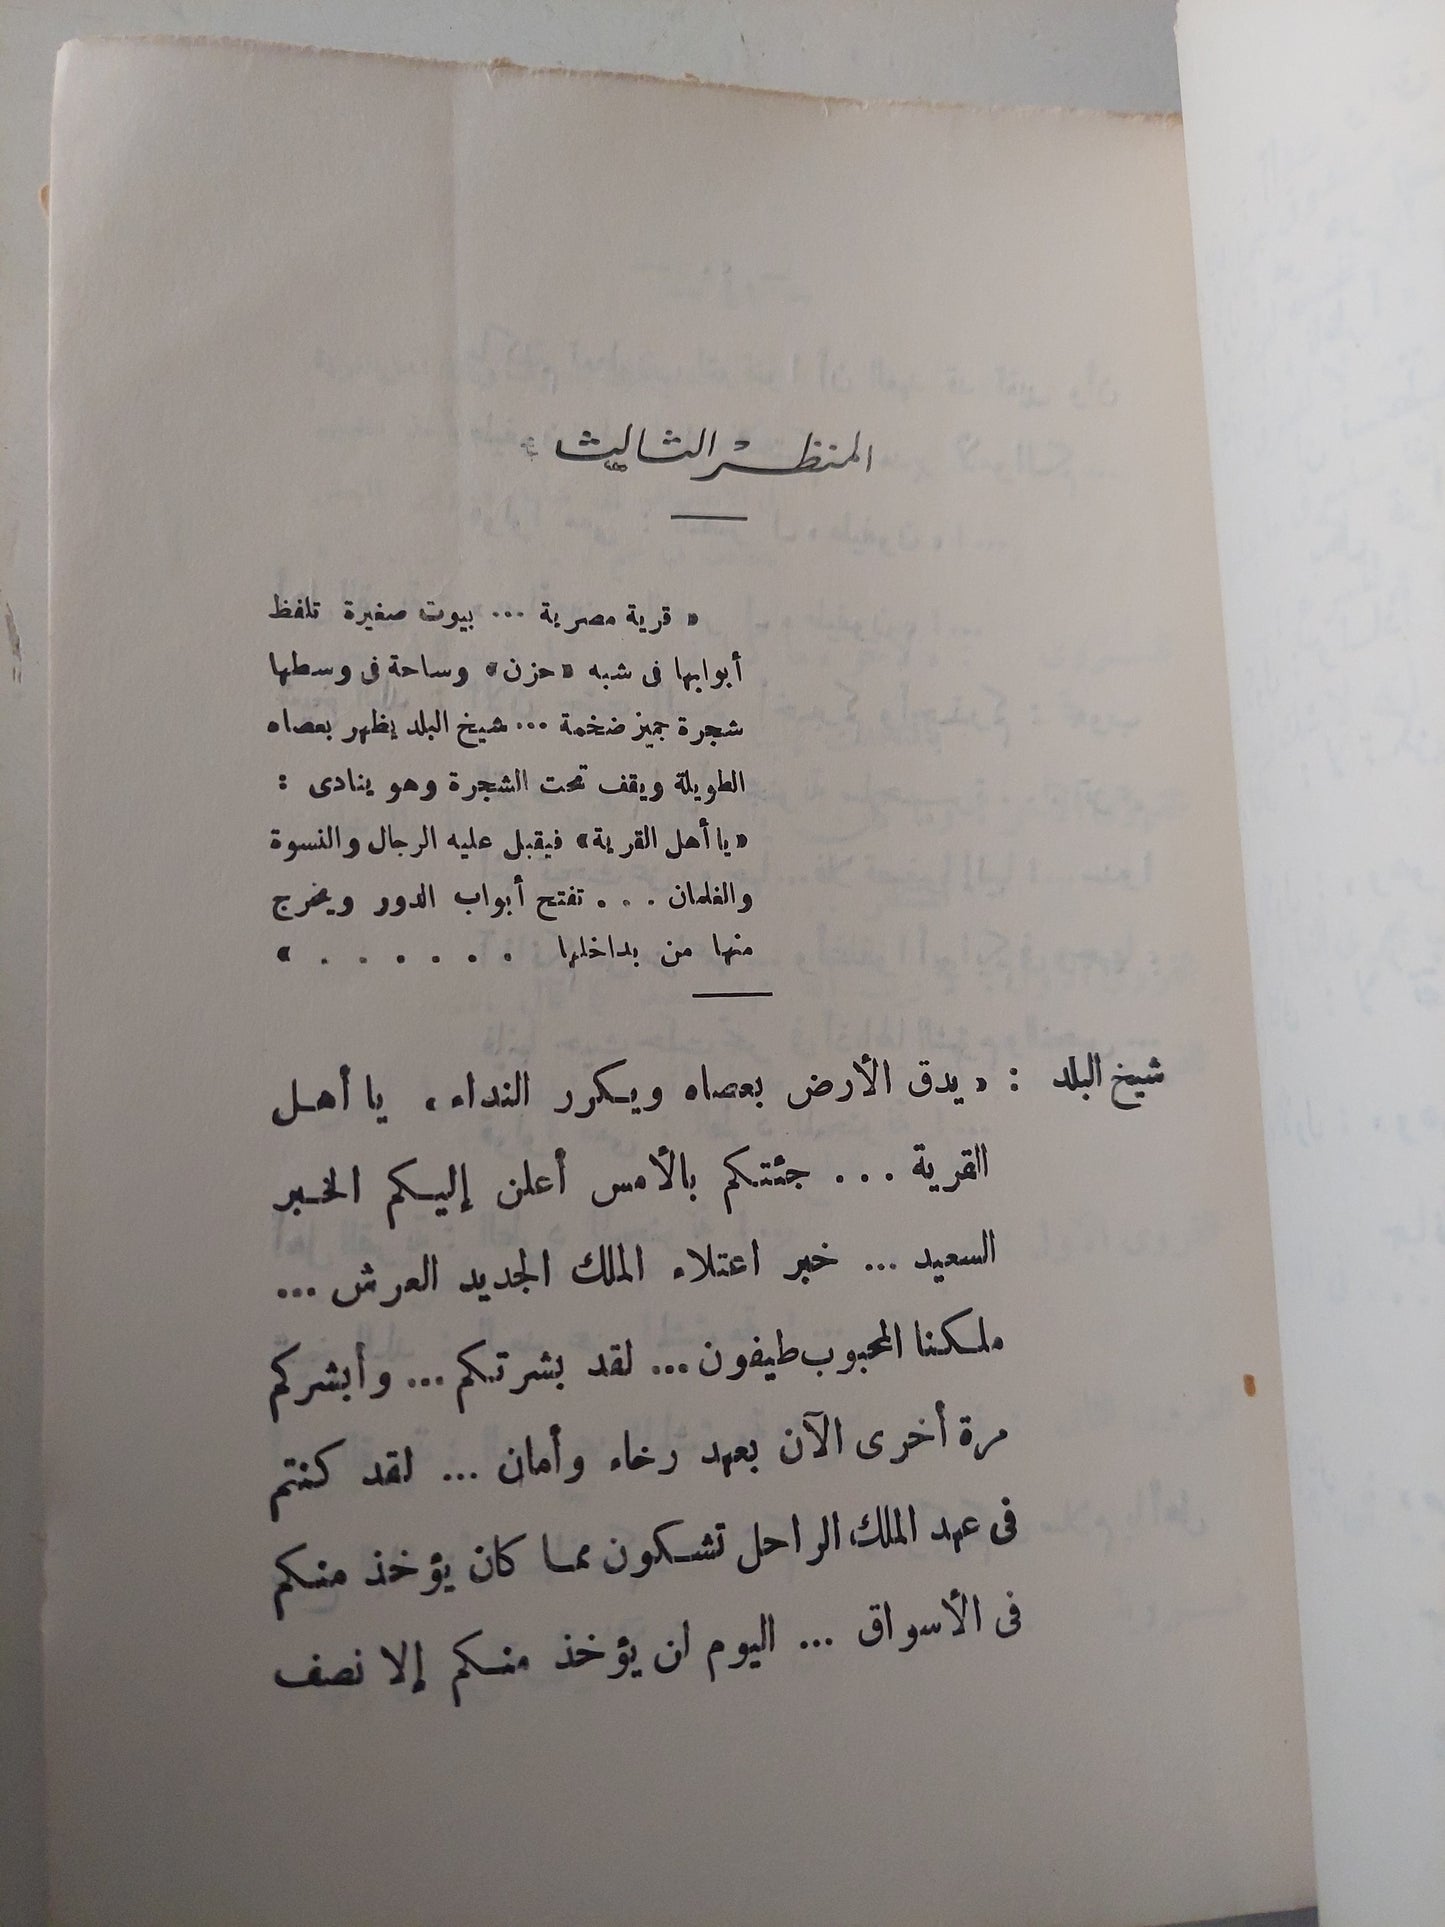 المنظر الثالث :
« قرية مصرية ... بيوت صغيرة تلفظ
أبوابها فى شبه «حزن» وساحة فى وسطها
شجرة جميز ضخمة ... شيخ البلد يظهر بعصاه
الطويلة ويقف تحت الشجرة وهو ينادى :
«يا أهل القرية» فيقبل عليه الرجال والنسوة
والغلمان . . . تفتح أبواب الدور ويخرج
منها من بداخلها . . . . . . »
شيخ البلد : « يدق الأرض بعصاه ويكرر النداء ، يا أهل
القرية . . . جئتكم بالأمس أعلن إليكم الخبر
السعيد ... خبر اعتلاء الملك الجديد العرش ...
ملكنا المحبوب طيفون ... لقد بشرتكم ... وأبشركم
مرة أخرى الآن بعهد رخاء وأمان ... لقد كنتم
فى عهد الملك الراحل تشكون مما كان يؤخذ منكم
فى الأسواق ... اليوم لن يؤخذ منكم إلا نصف